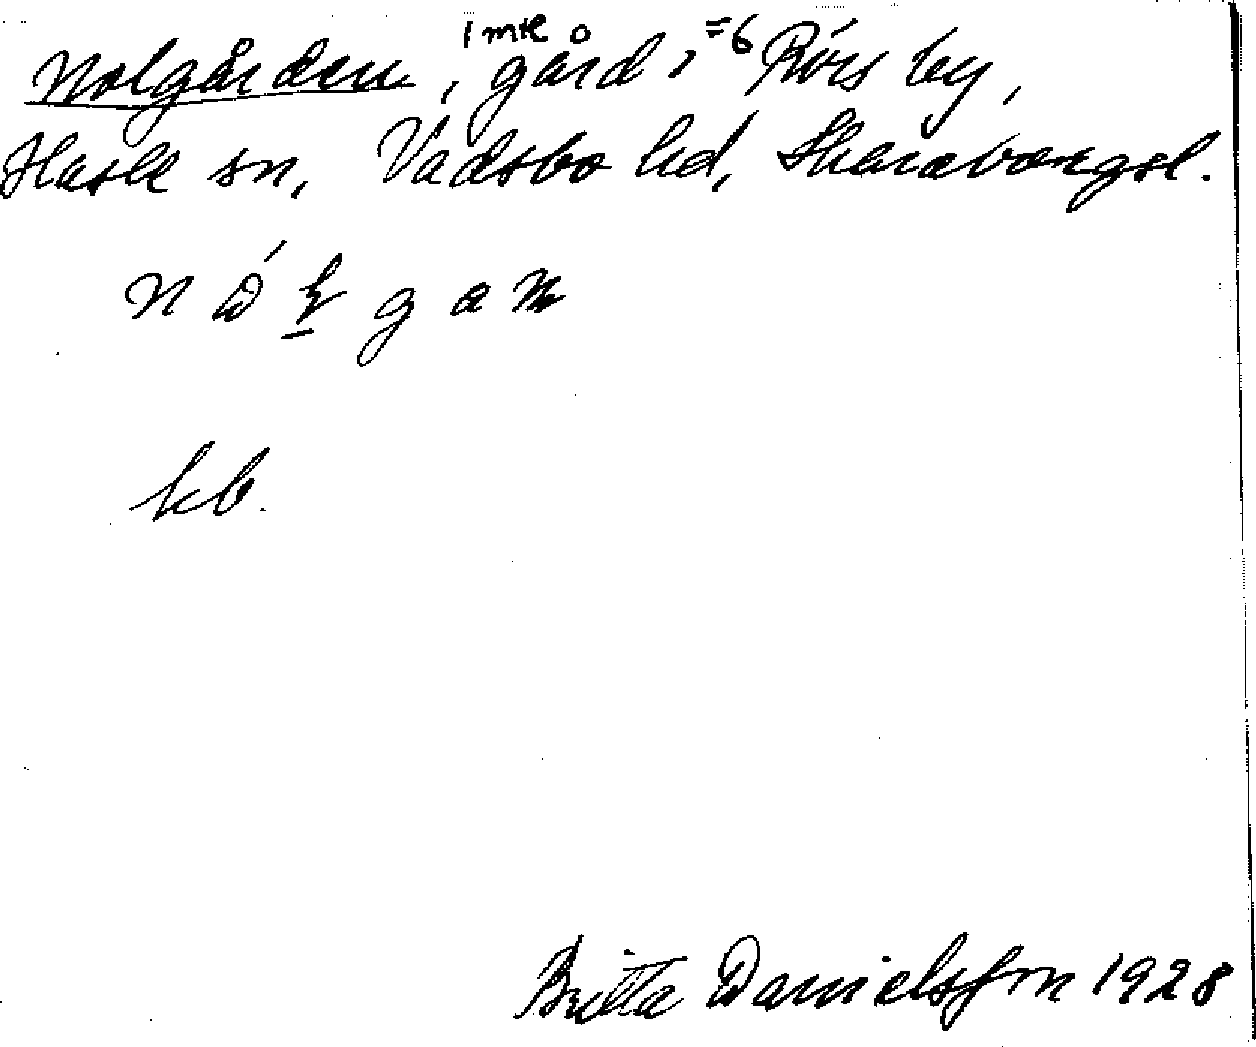 Nolgården, gård i Rörs by,
1 mtl =6
Hassle sn, Vadsbo hd, Skaraborgsl.
kb.
Britta Danielsson 1928